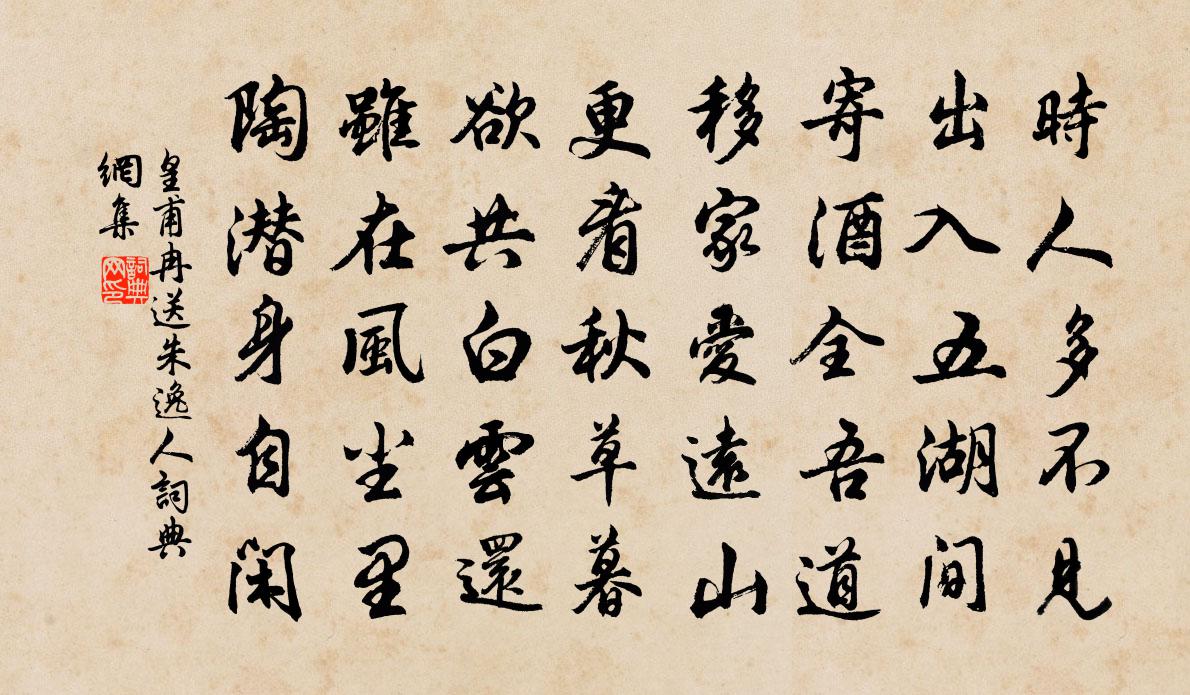 時人多不見
出入五湖間
寄酒全吾道
移家愛遠山
更看秋草暮
欲共白雲還
雖在風尘里
陶潜身自闲
皇甫冉送朱逸人詞典
網集
詞典
网印